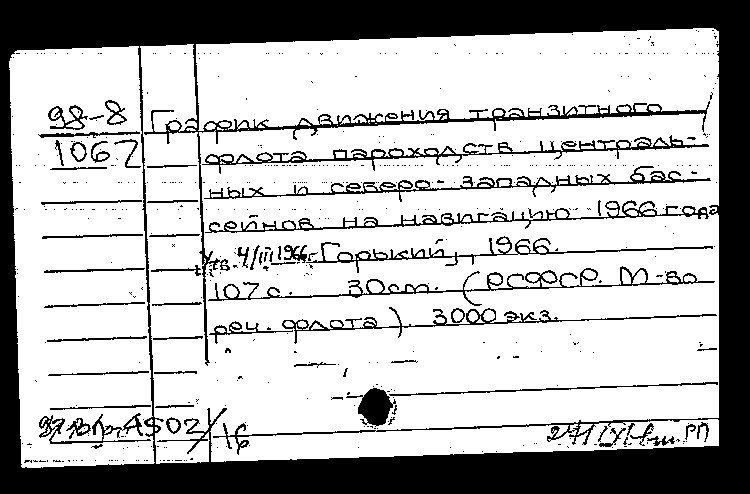 98-8 График движения транзитного
1067 флота пароходств централь-
ных и северо-западных бас-
сейнов на навигацию 1966 года
Утв. 4/III 1966г. Горький, 1966.
107 с. 30 cm. (РСФСР. М-во
реч. флота). 3000 экз.
AS02/16 РП